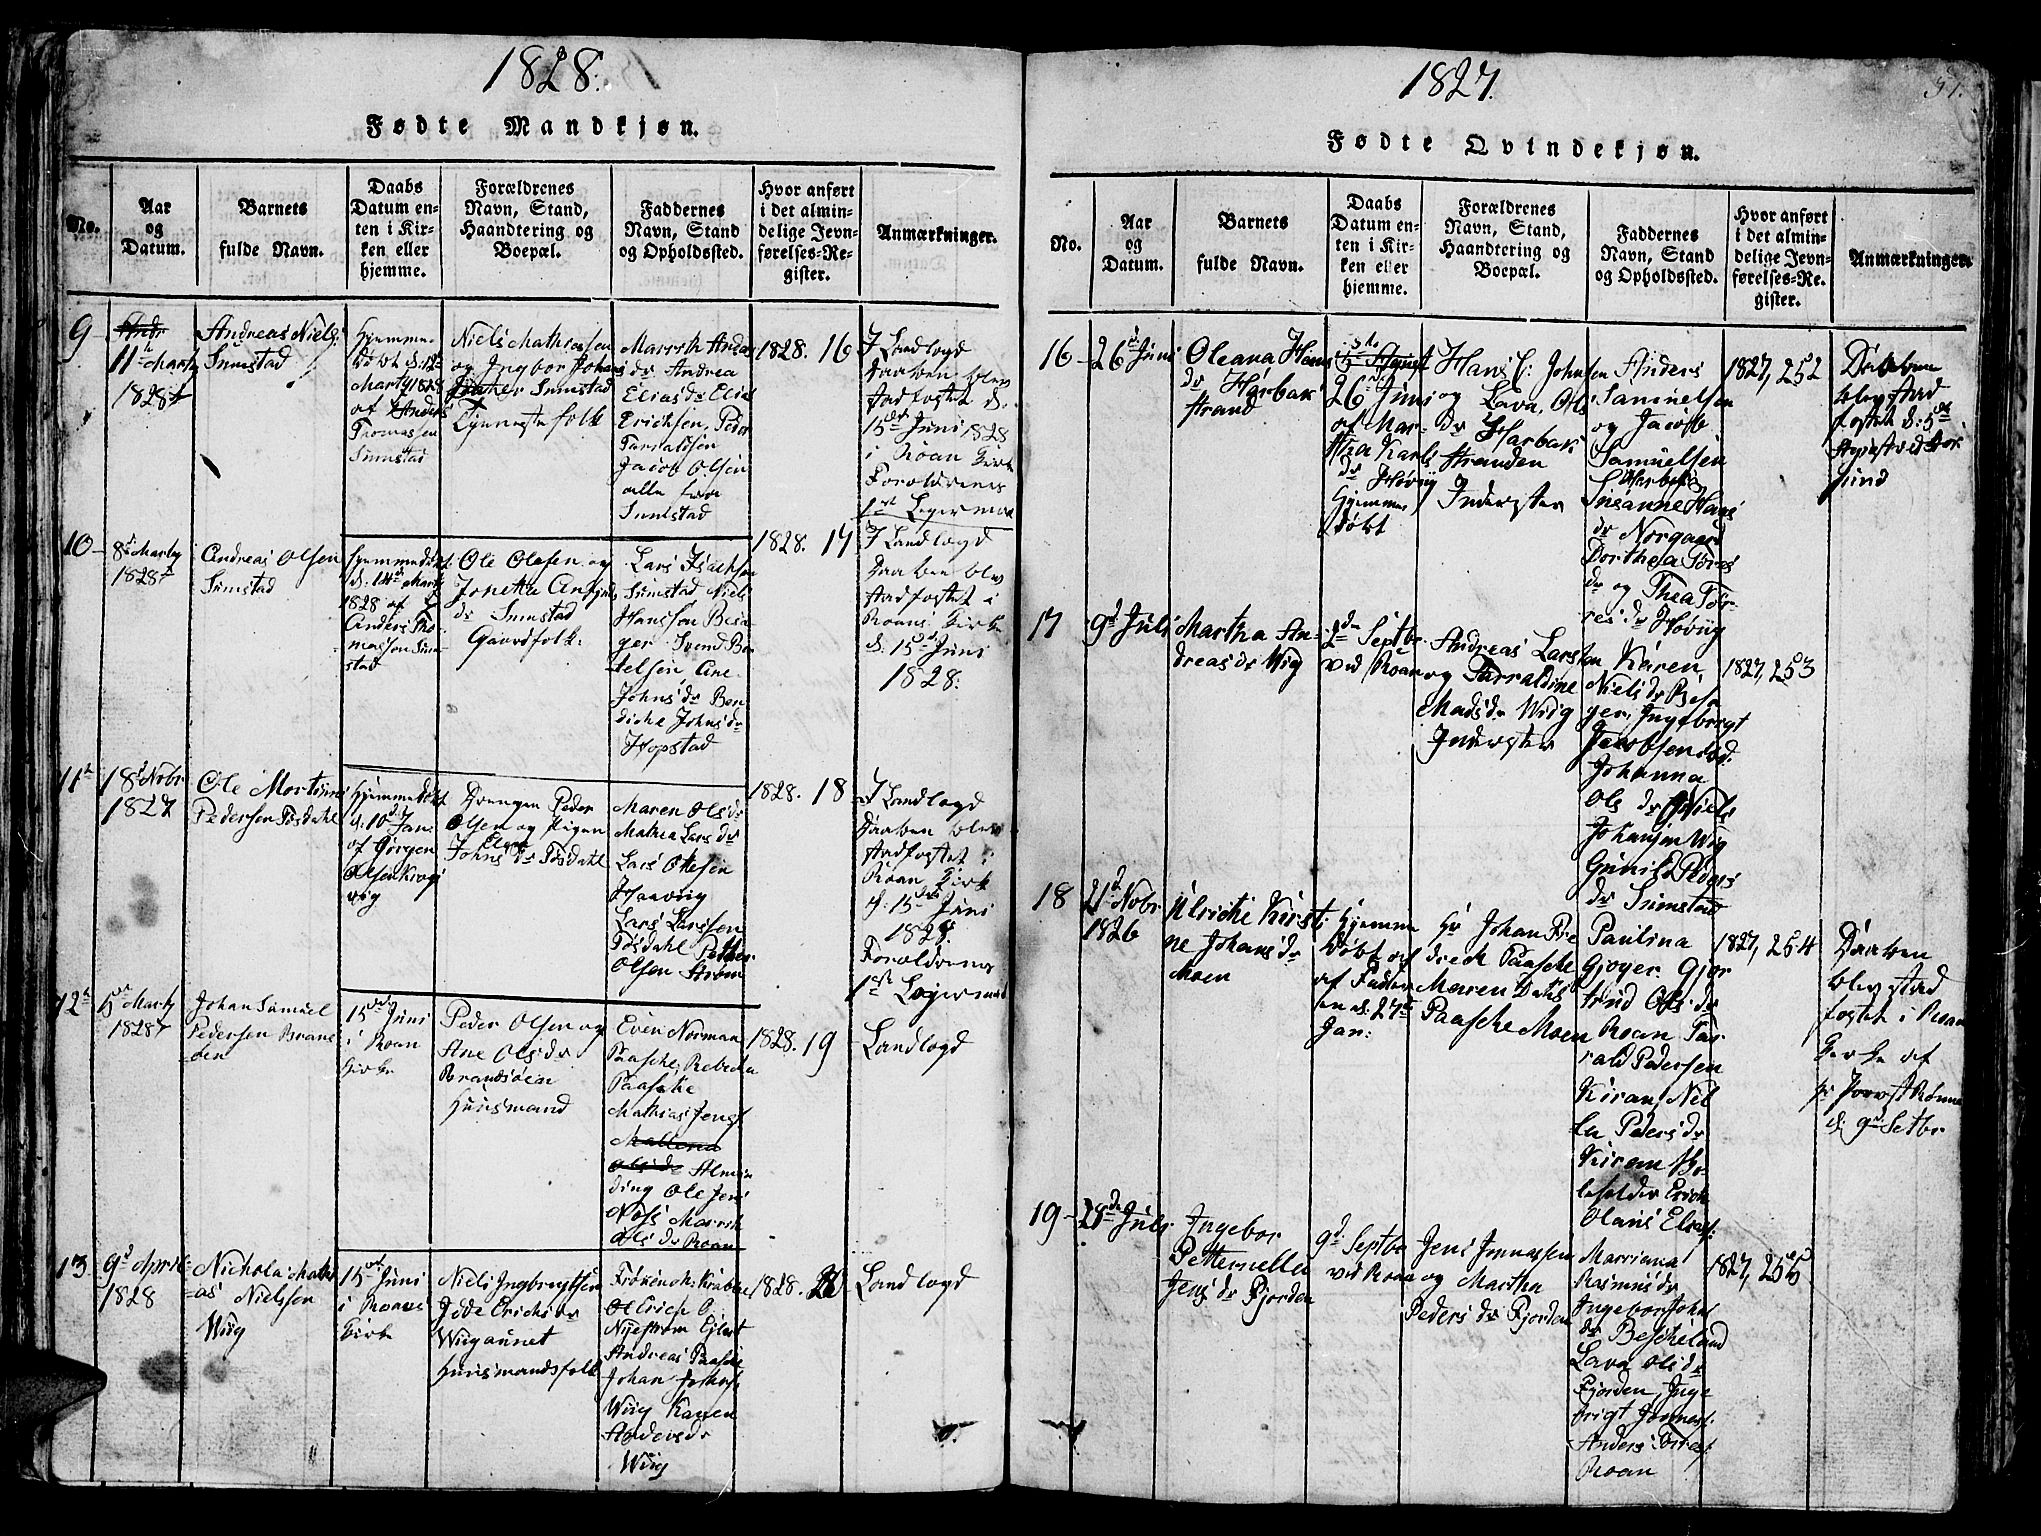 1828.
Fødte Mandkjøn.
No.
Aar
og
Datum.
Barnets
fulde Navn.
Daabs
Datum en-
ten i Kir-
ken eller
hjemme.
Forældrenes
Navn, Stand,
Haandtering og
Boepæl.
Faddernes
Navn, Stand
og Opholdssted.
Hvor anført
i det almin-
delige Jevn-
førelses-Re-
gister.
Anmærkninger.
9
11te Marty
1828
Andreas Niels:
Sumstad
Hjemme
døbt d: 12te
Marty 1828
af Anders
Thomassen
Sumstad
Niels Mathiasen
og Ingbor Johans
dr Sumstad
Marith Andas
dr Andrea
Elias dr Elias
Erichsen, Peder
Tarraldsen
Jacob Olsen
alle fra
Sumstad
1828. 16
I Landlogd
Daaben blev
stadfæstet d.
15de Juni 1828
i Roan Kirke
Foreldrenes
1ste Leiermaal
10
8de Marty
1828
Andreas Olsen
Sumstad
Hjemmedøbt
d: 14de Marty
1828 af
Anders Tho-
massen Sum-
stad
Ole Olesen og
Jonetta Andreas
dr Sumstad
Gaardfolk:
Lars Isachsen
Sumstad Niels
Hanssen Bessa-
ger Svend Ber-
telsen Ane
Johns dr Ben-
dicke Johns dr
Hopstad
1828. 17
I Landlogd
Daaben blev
stadfæstet i
Roans Kirke
d: 15de Juni
1828:
11
18de Nobr
1827
Ole Mortinus
Pedersen Tøsdahl
Hjemmedøbt
d: 10de Jan:
af Jørgen
Olsen Krog-
vig
Drengen Peder
Olsen og Pigen
Elen
Johns dr Tøsdahl
Maren Ols dr
Mathea Lars dr
Lars Olesen
Haavig
Lars Larssen
Tøsdahl Petter
Olsen Strøm
1828. 18
I Landlogd
Daaben blev
stadfæstet i
Roan Kirke
d: 15de Juni
1828.
Foreldrenes
1ste Leiermaal
12
5de Marty
1828
Johan Samuel
Pedersen Brans
øen
15de Juni
i Roan
Kirke
Peder Olsen og
Ane Ols dr
Brandsøen
Huusmand
Even Norman
Paaske, Rebecka
Paaske
Mathias Jens
Ole Jens
Næss Marith
Ols dr Roan
1828. 19
Landlogd
13
9de April
1828
Nicholai Mathi
as Nielssen
Wiig
15de Juni
i Roans
Kirke
Niels Ingbrygtsen
Jede Erichs dr
Wiigaunet
Huusmandsfolk
Frøken M: Krabbe
Nyestrøm Eilert
Andreas Paaske
Johan
Wiig Karen
Anders dr
Wiig
1828. 20
Landlogd
1827.
Fødte Qvindekjøn.
No.
Aar
og
Datum.
Barnets
fulde Navn.
Daabs
Datum en-
ten i Kir-
ken eller
hjemme.
Forældrenes
Navn, Stand,
Haandtering og
Boepæl.
Faddernes
Navn, Stand
og Opholdssted.
Hvor anført
i det almin-
delige Jevn-
førelses-Re-
gister.
Anmærkninger.
16
26de Juni
Oleana Hans
dr Harbak
strand
26de Juni
af Mar-
tha Karls
dr Hovig
Hjemme
døbt
Hans C: Johnsen
og Lava Ols
dr Harbak
stranden
Inderster
Anders
Samuelsen
og Jacob
Samuelsen
Harbak
Susanne Hans
dr Norgaard
Dorthea Tøres
dr og Thea Tør-
res dr Hoviig
1827, 252
Daaben
blev stad
fæstet d: 5te
August ved Hor
sund
17
9de Juli
Martha An-
dreas dr Wiig
2de Septbr
ved Roan
Andreas Larssen
og Tarraldine
Mads dr Wiig
Inderster
Karen
Niels dr Bes-
ger, Ingebrygt
Jacobsen
Johanna
Ols dr Niels
Johansen Wiig
Gunild Peders
dr Sumstad
1827, 253
18
21de Nobr
1826
Ulricke Kirst:
ne Johans dr
Moen
Hjemme
døbt
af Fader
en d. 27de
Jan:
Hr Johan Frie
drech Paaske
Maren Dahl
Paaske Moen
Paulina
Gjøger Gjer
trud Ols dr
Roan Tar-
rald Pedersen
Kiran, Nil
la Peders dr
Kiran
Erich
1827, 254
Daaben
blev stad
fæstet i Roan
Kerke af
Hr Provst Rønne
d: 9de Setbr
19
28de Juli
Ingebor
Petternella
Jens dr Fjorden
9de Septbr
ved Roan
Jens Jonnassen
og Martha
Peders dr Fjorden
Marriana
Rasmus dr
Ingebor Johns
dr Beskeland
Lava Ols dr
Fjorden, Inge
brigt Jonnas:
Anders
Roan
1827, 255